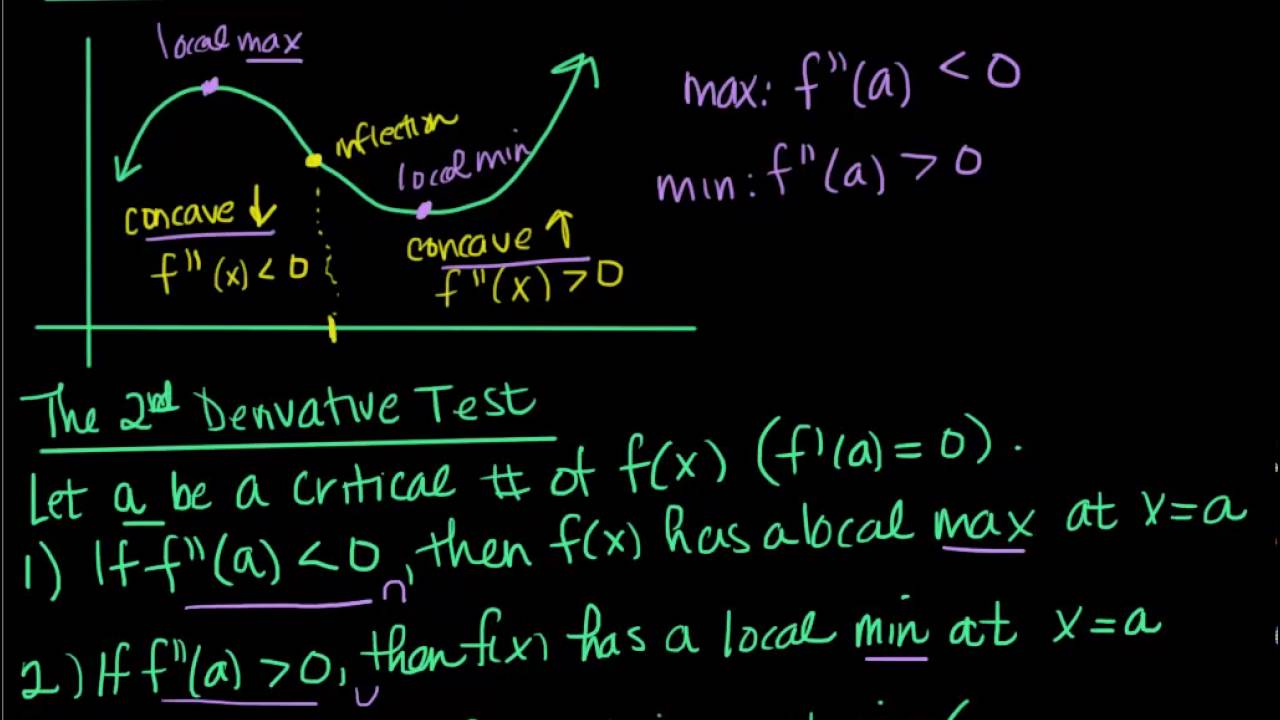 local max
max: f"(a) < 0
inflection
local min
min: f"(a) > 0
concave ↓
f"(x) < 0
concave ↑
f"(x) > 0
The 2nd Derivative Test
Let a be a critical # of f(x) (f'(a) = 0).
1) If f"(a) < 0, then f(x) has a local max at x = a
∩
2) If f"(a) > 0, then f(x) has a local min at x = a
∪